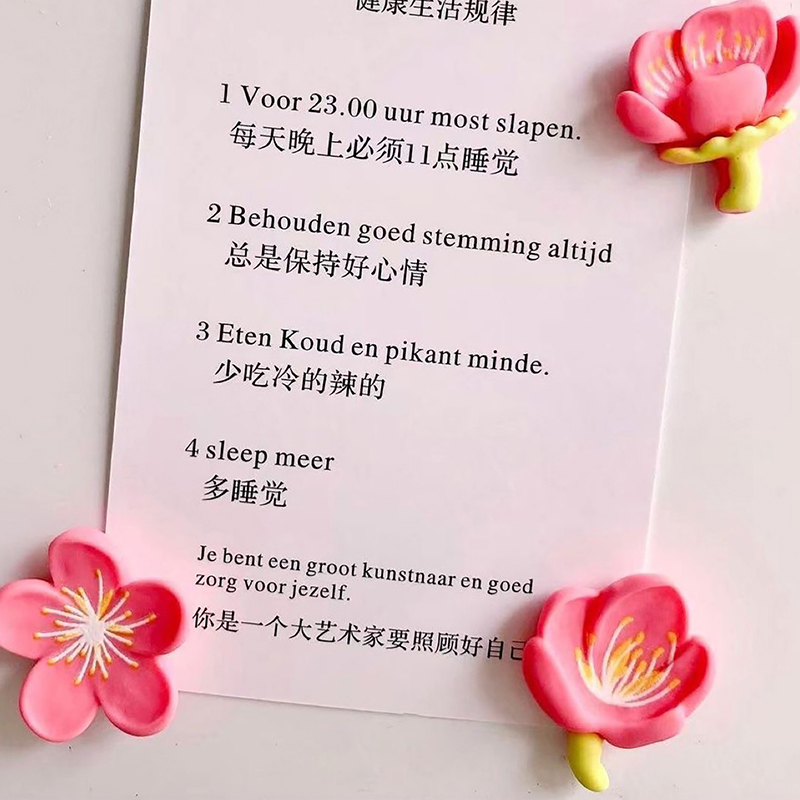 健康生活规律
1 Voor 23.00 uur most slapen.
每天晚上必须11点睡觉
2 Behouden goed stemming altijd
总是保持好心情
3 Eten Koud en pikant minde.
少吃冷的辣的
4 sleep meer
多睡觉
Je bent een groot kunstnaar en goed
zorg voor jezelf.
你是一个大艺术家要照顾好自己